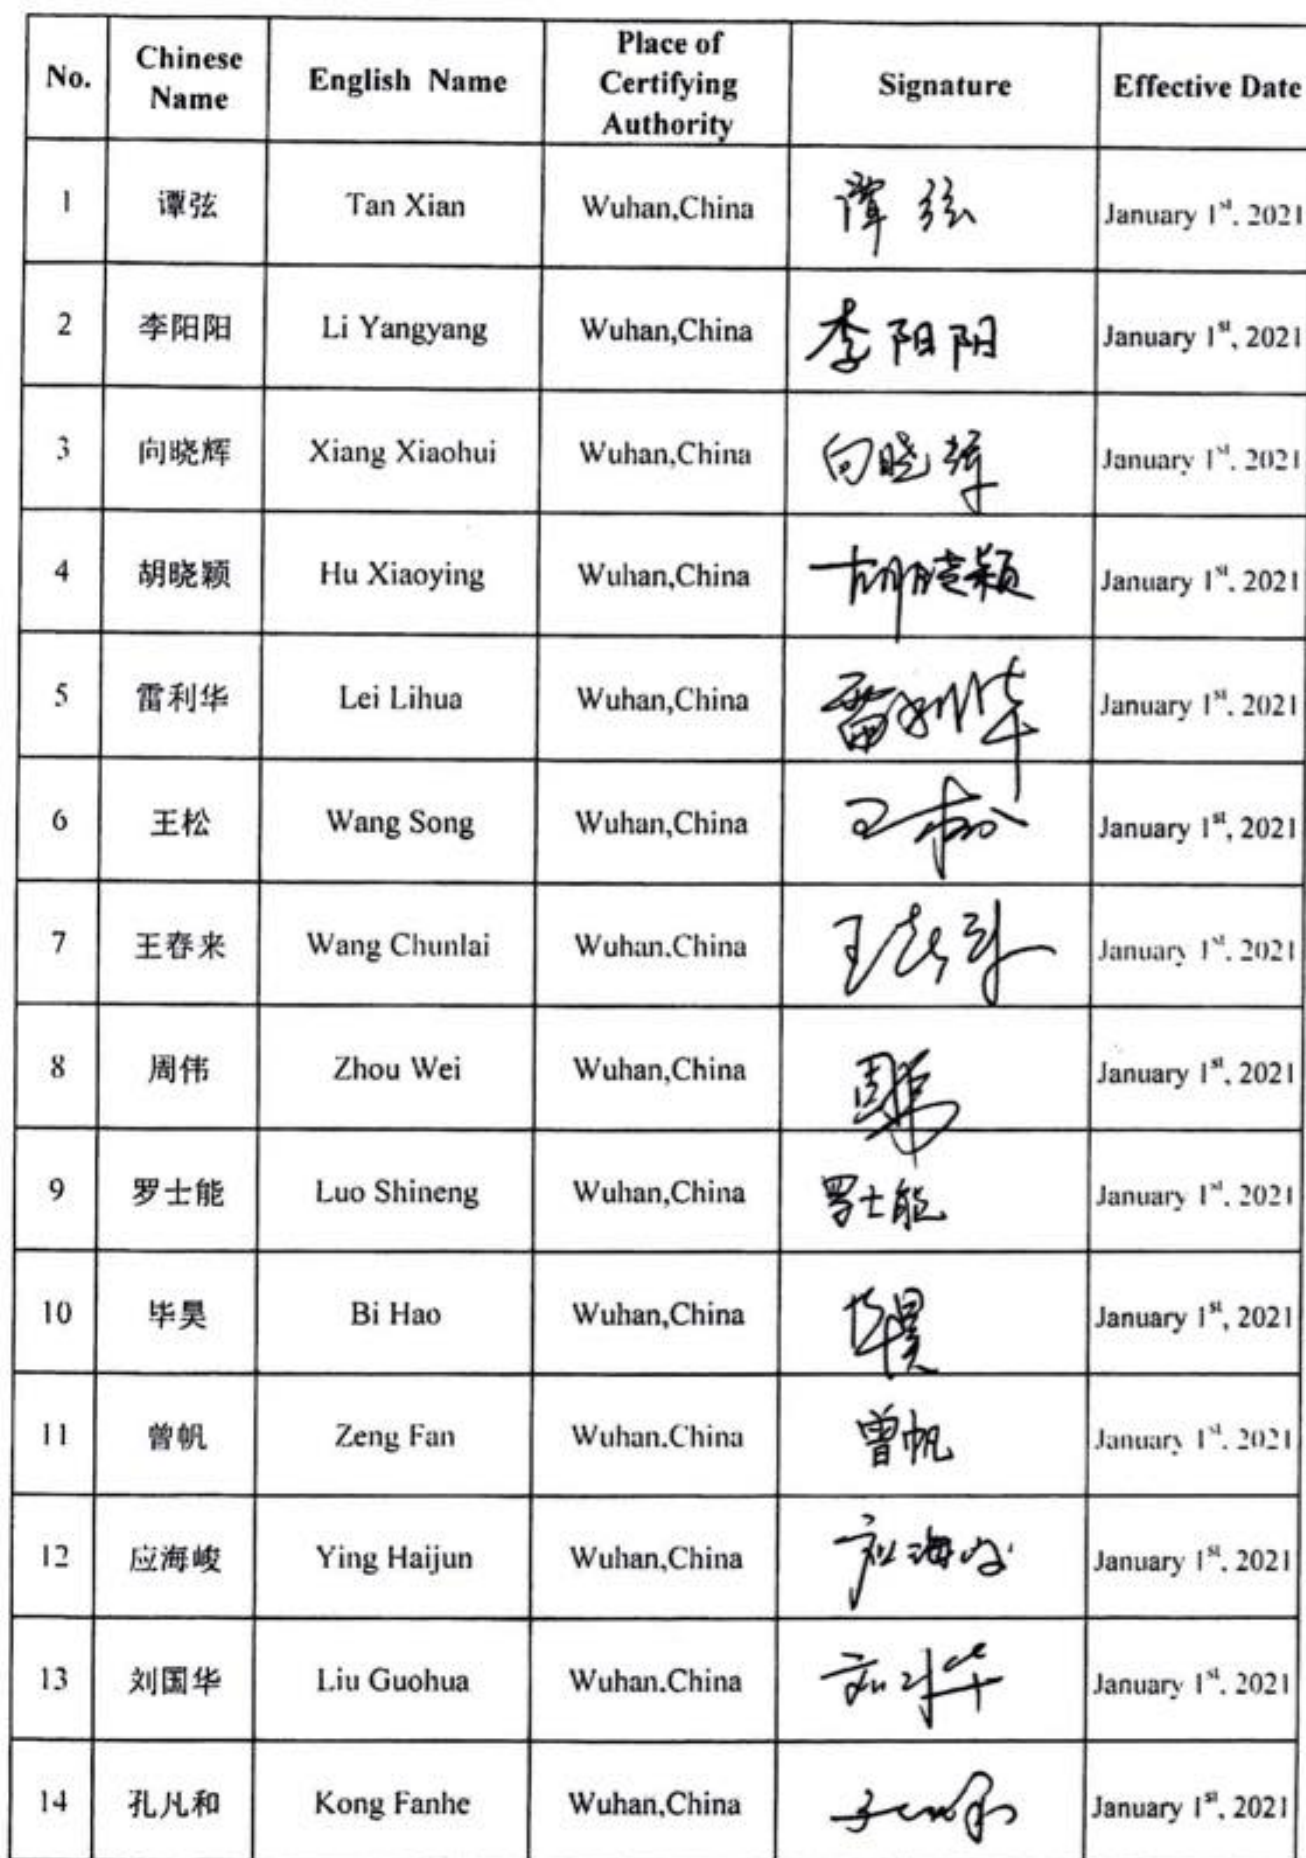 No. Chinese Name English Name Place of Certifying Authority Signature Effective Date
1 谭弦 Tan Xian Wuhan,China 谭弦 January 1st, 2021
2 李阳阳 Li Yangyang Wuhan,China 李阳阳 January 1st, 2021
3 向晓辉 Xiang Xiaohui Wuhan,China 向晓辉 January 1st, 2021
4 胡晓颖 Hu Xiaoying Wuhan,China 胡晓颖 January 1st, 2021
5 雷利华 Lei Lihua Wuhan,China 雷利华 January 1st, 2021
6 王松 Wang Song Wuhan,China 王松 January 1st, 2021
7 王春来 Wang Chunlai Wuhan,China 王春来 January 1st, 2021
8 周伟 Zhou Wei Wuhan,China 周伟 January 1st, 2021
9 罗士能 Luo Shineng Wuhan,China 罗士能 January 1st, 2021
10 毕昊 Bi Hao Wuhan,China 毕昊 January 1st, 2021
11 曾帆 Zeng Fan Wuhan,China 曾帆 January 1st, 2021
12 应海峻 Ying Haijun Wuhan,China 应海峻 January 1st, 2021
13 刘国华 Liu Guohua Wuhan,China 刘国华 January 1st, 2021
14 孔凡和 Kong Fanhe Wuhan,China 孔凡和 January 1st, 2021